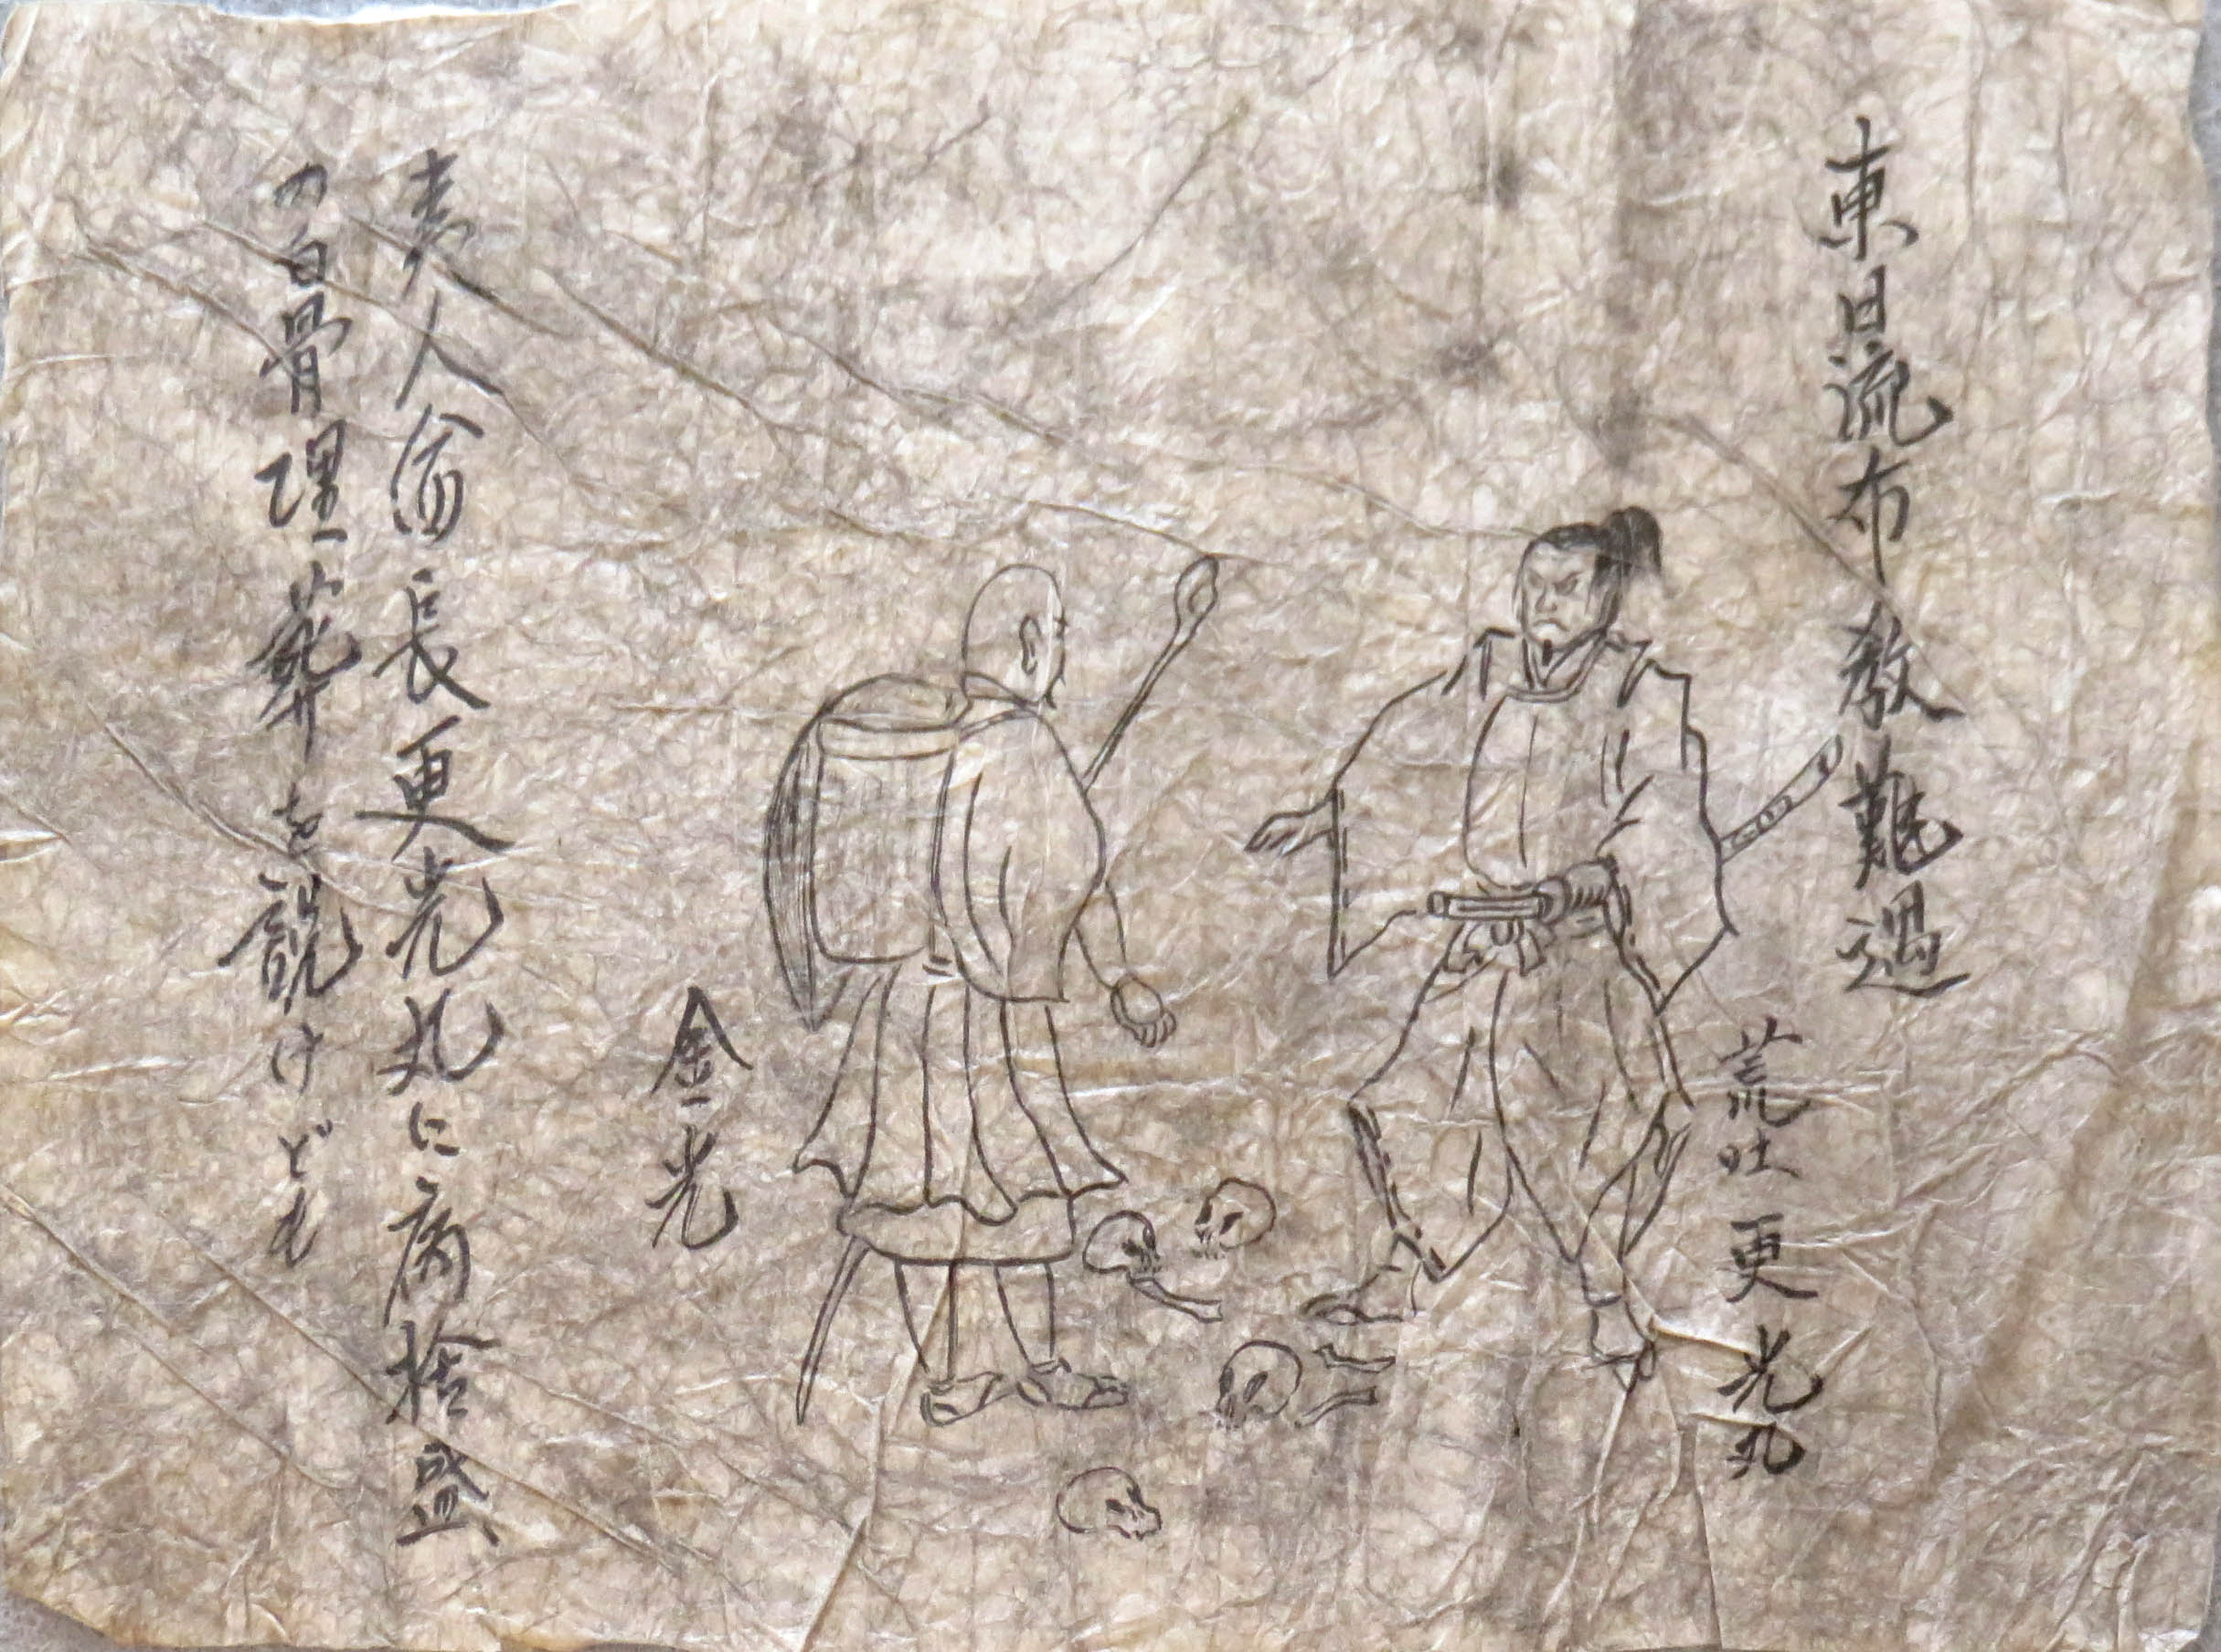 東日流布教難遇
荒吐更光丸
金光
夷人酋長更光丸に病捨盛
の白骨埋葬を説けども